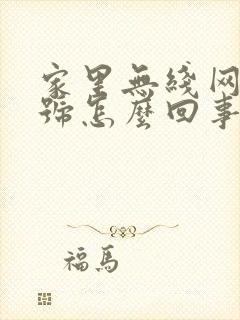 家里無綫网
號怎麼回事
福馬